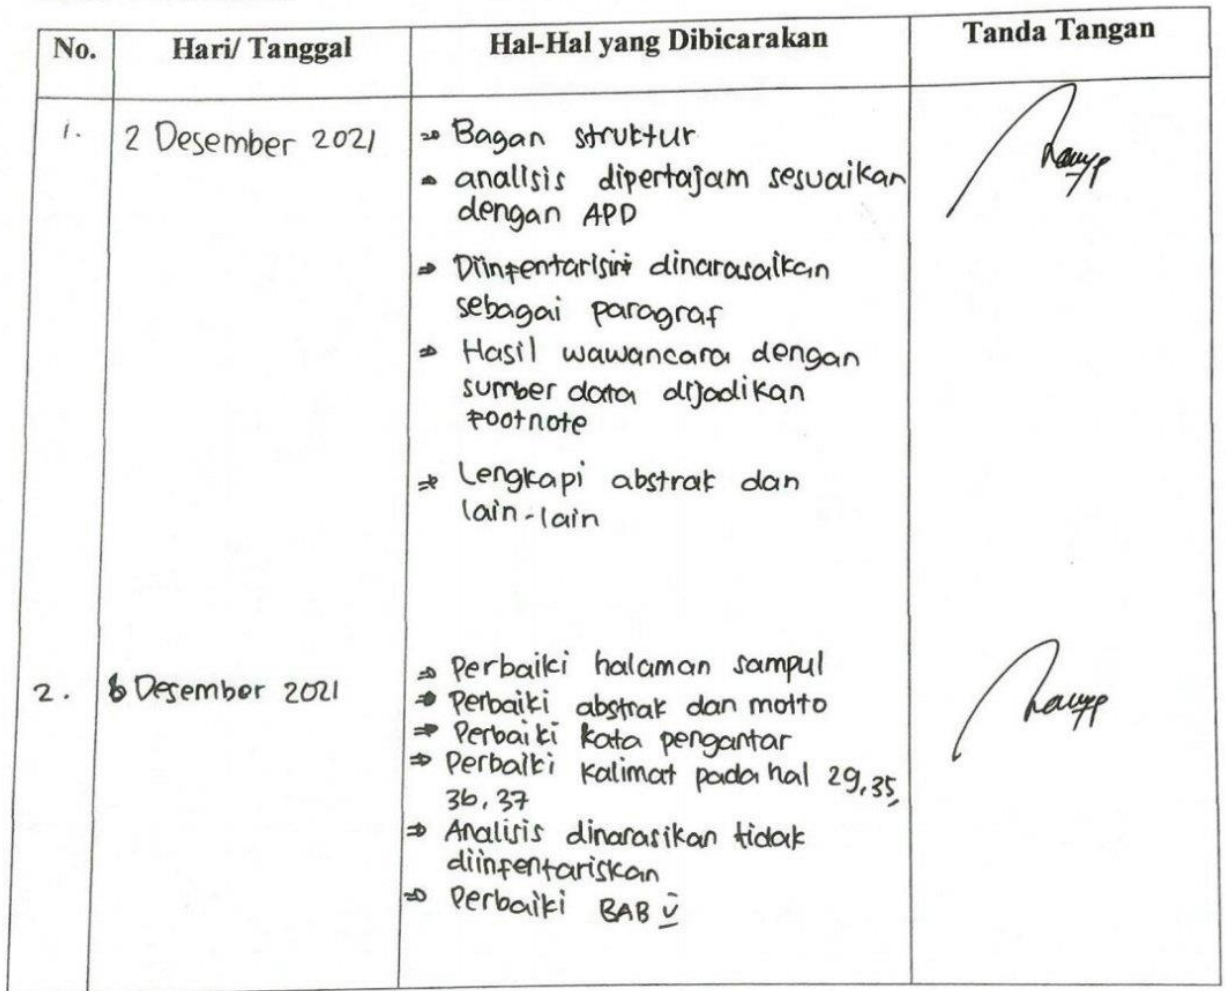 No. Hari/ Tanggal Hal-Hal yang Dibicarakan Tanda Tangan
1. 2 Desember 2021 ⇒ Bagan struktur
⇒ analisis dipertajam sesuaikan
dengan APD
⇒ Diinfentarisiri dinarasaikan
sebagai paragraf
⇒ Hasil wawancara dengan
sumber data dijadikan
footnote
⇒ Lengkapi abstrak dan
lain-lain
2. 6 Desember 2021 ⇒ Perbaiki halaman sampul
⇒ Perbaiki abstrak dan motto
⇒ Perbaiki kata pengantar
⇒ Perbaiki kalimat pada hal 29, 35,
36, 37
⇒ Analisis dinarasikan tidak
diinfentariskan
⇒ Perbaiki BAB V